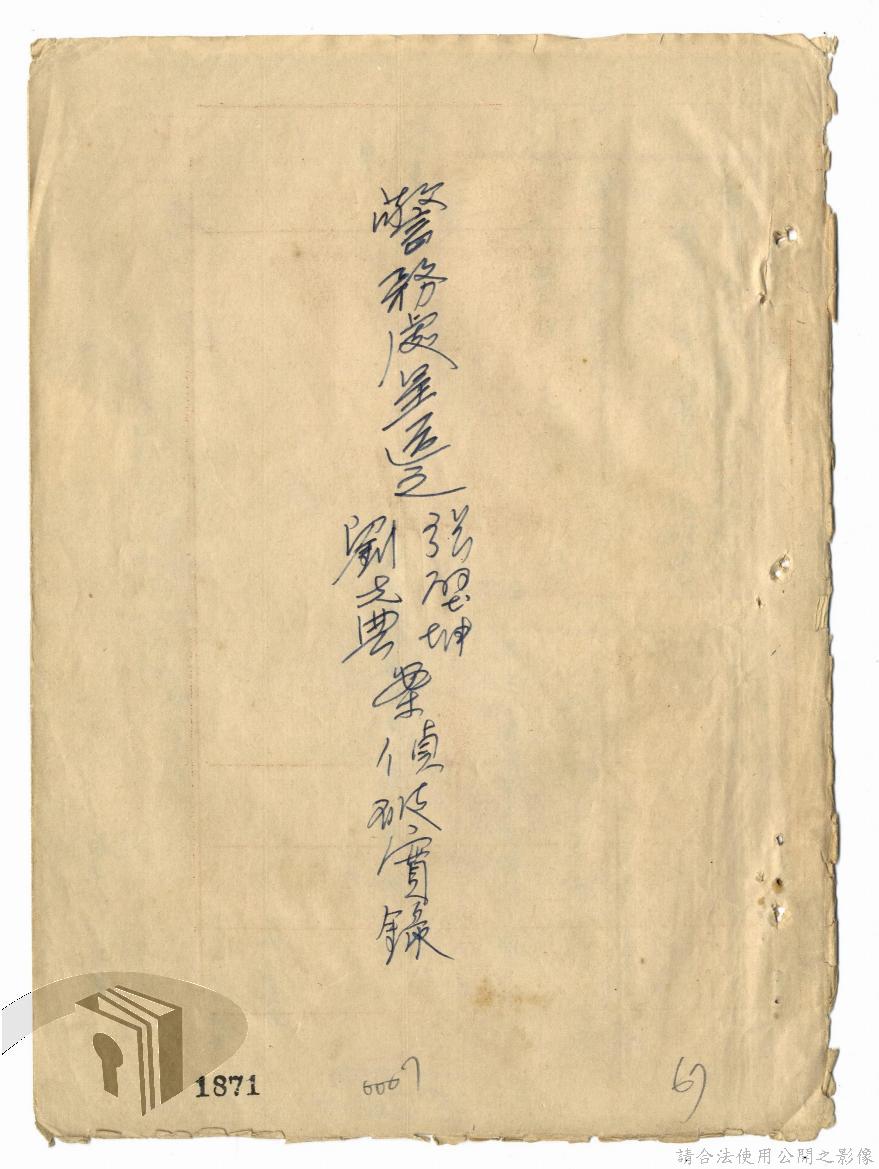 警務處呈之
張璧坤
劉元典
案偵破實錄
1871
0067
67
請合法使用公開之影像